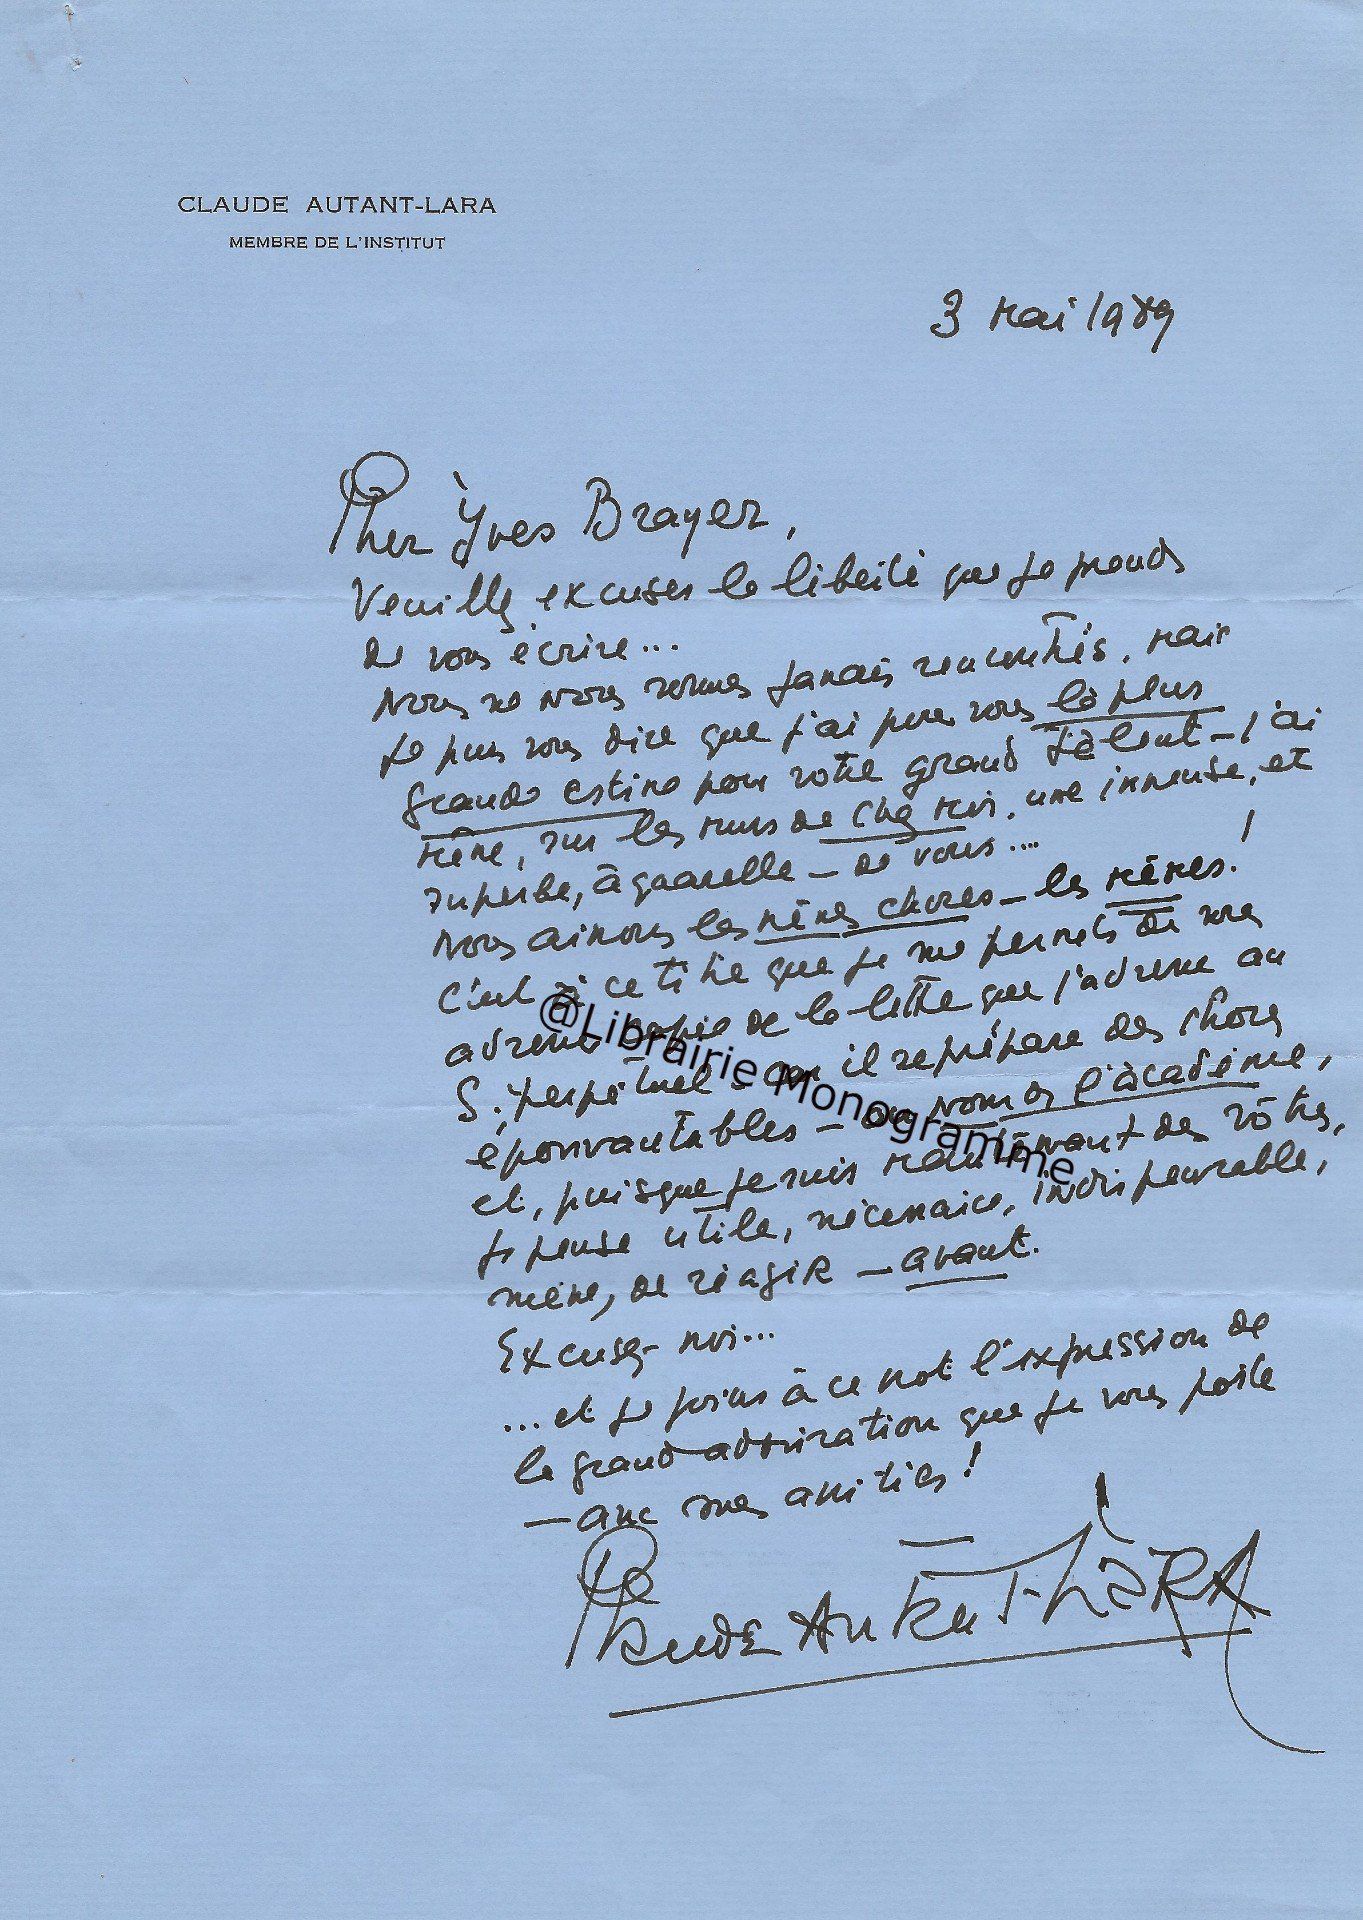 CLAUDE AUTANT-LARA
MEMBRE DE L'INSTITUT
3 Mai 1989
Cher Yves Brayer,
Veuillez excuser la liberté que je prends
de vous écrire...
Nous ne nous sommes jamais rencontrés, mais
je puis vous dire que j'ai pour vous la plus
grande estime pour votre grand talent - j'ai
même, sur les murs de chez moi, une immense, et
superbe, aquarelle - de vous...
Nous aimons les mêmes choses - les mêmes!
C'est à ce titre que je me permets de vous
adresser copie de la lettre que j'adresse au
S. perpétuel - car il se prépare des choses
épouvantables - au nom de l'académie,
et, puisque je suis maintenant des vôtres,
je pense utile, nécessaire, indispensable,
même, de réagir - avant.
Excusez-moi...
... et je joins à ce mot l'expression de
la grande admiration que je vous porte
- avec mes amitiés!
Claude Autant-Lara
@Librairie Monogramme